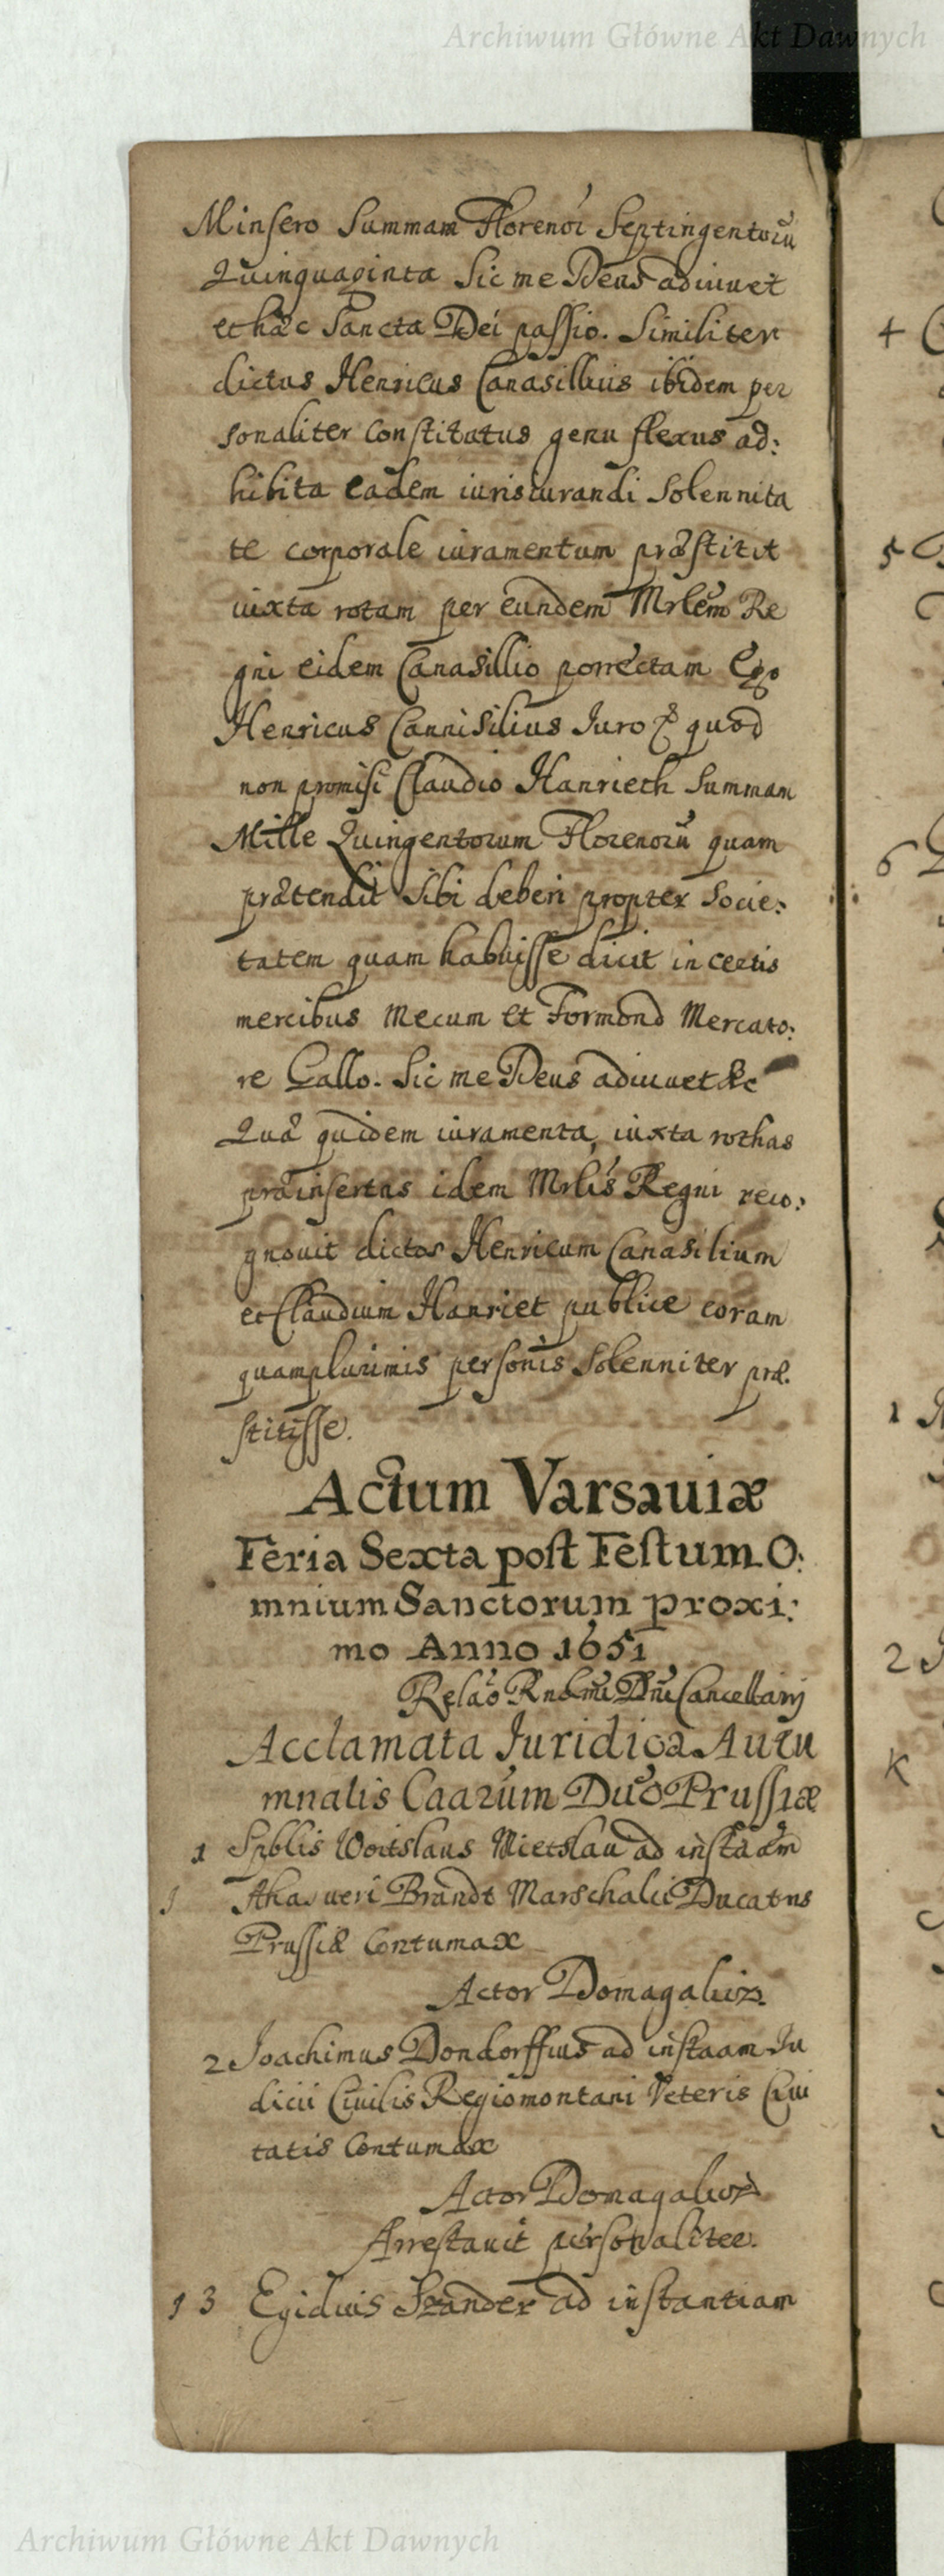 Archiwum Główne Akt Dawnych
Minsero Summam Florenoŕ Septingentorū
Quinquaginta Sic me Deus adiuuet
et hæc Sancta Dei passio. Similiter
dictus Henricus Canasillius ibidem per
sonaliter Constitutus genu flexus ad:
hibita eadem iurisiurandi Solennita
te corporale iuramentum præstitit
iuxta rotam per eundem Mrlem Re
gni eidem Canasillio porrectam Ego
Henricus Cannisilius Juro quod
non promisi Claudio Hanrieth Summam
Mille Quingentorum Florenorū quam
prætendit Sibi deberi propter Socie:
tatem quam habuisse dicit in certis
mercibus Mecum et Formond Mercato:
re Gallo. Sic me Deus adiuuet &c
Quæ quidem iuramenta, iuxta rothas
præinsertas idem Mrlis Regni reco:
gnouit dictos Henricum Canasilium
et Claudium Hanriet publice coram
quamplurimis personis Solenniter præ.
stitisse.
Actum Varsauiæ
Feria Sexta post Festum O:
mnium Sanctorum proxi:
mo Anno 1651
Relaõ Rndmi Dni Cancellarij
Acclamata Juridica Autu
mnalis Caarum Duc Prussiæ
1 Spblis Woitslaus Mietslau ad instaam
Ahasueri Brandt Marschalci Ducatus
Prussiæ Contumax
Actor Domagalicz.
2 Joachimus Dondorffius ad instaam Ju
dicii Ciuilis Regiomontani Veteris Ciui
tatis Contumax
Actor Domagalicz
Arrestauit personaliter.
3 Egidius Szander ad instantiam
4
5
6
1
2
K
Archiwum Główne Akt Dawnych